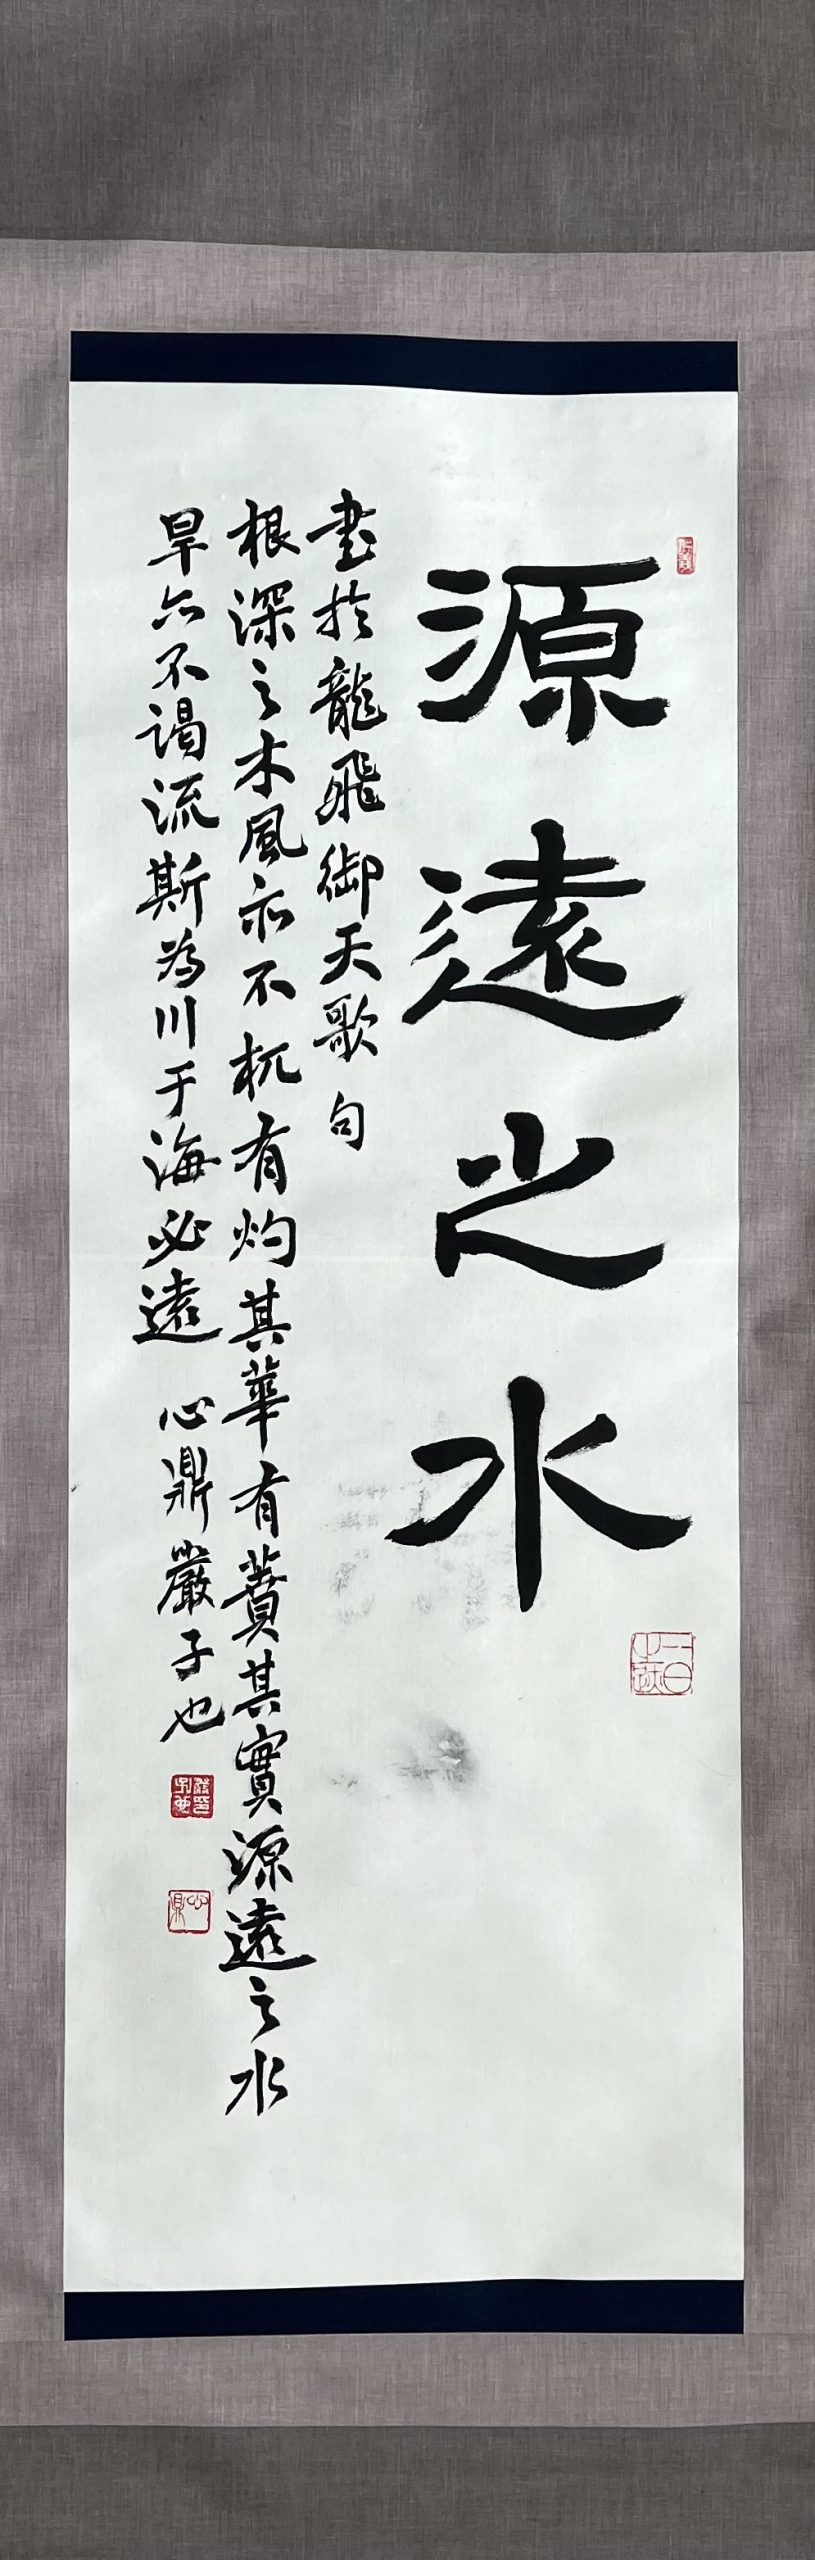 源遠之水
書於龍飛御天歌句
根深之木風亦不杌有灼其華有蕡其實源遠之水
旱亦不竭流斯為川于海必達 心鼎嚴子也